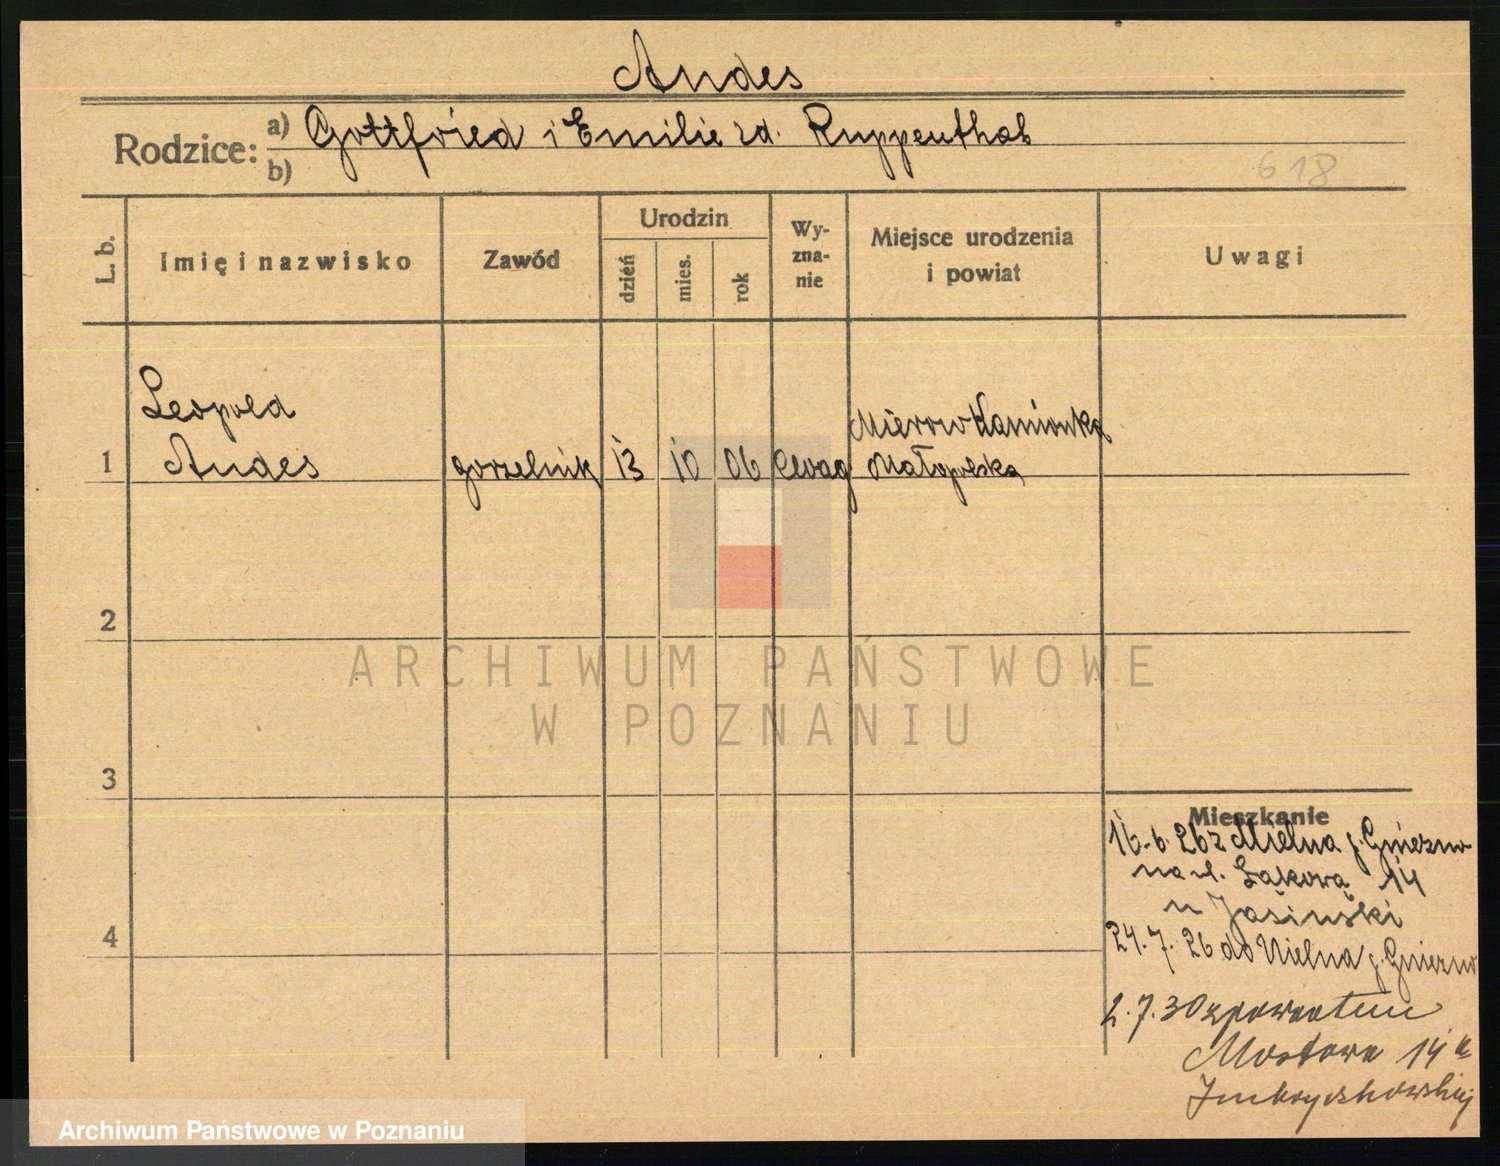 Andes
Rodzice: a) Gottfried i Emilie zd. Ruppenthal
b)
618
L. b.
Imię i nazwisko
Zawód
Urodzin
dzień
mies.
rok
Wy-
zna-
nie
Miejsce urodzenia
i powiat
Uwagi
Leopold
1 Andes gorzelnik 13 10 06 ewag
Mierow Kamionka
Małopolska
2
ARCHIWUM PAŃSTWOWE
W POZNANIU
3
4
Mieszkanie
16.6.26 z Mielna p. Gniezno
na ul. Łąkową 14
u Jasiński
24.7.26 do Mielna p. Gniezno
2.7.30 z powrotem
Mostowa 14a
Archiwum Państwowe w Poznaniu